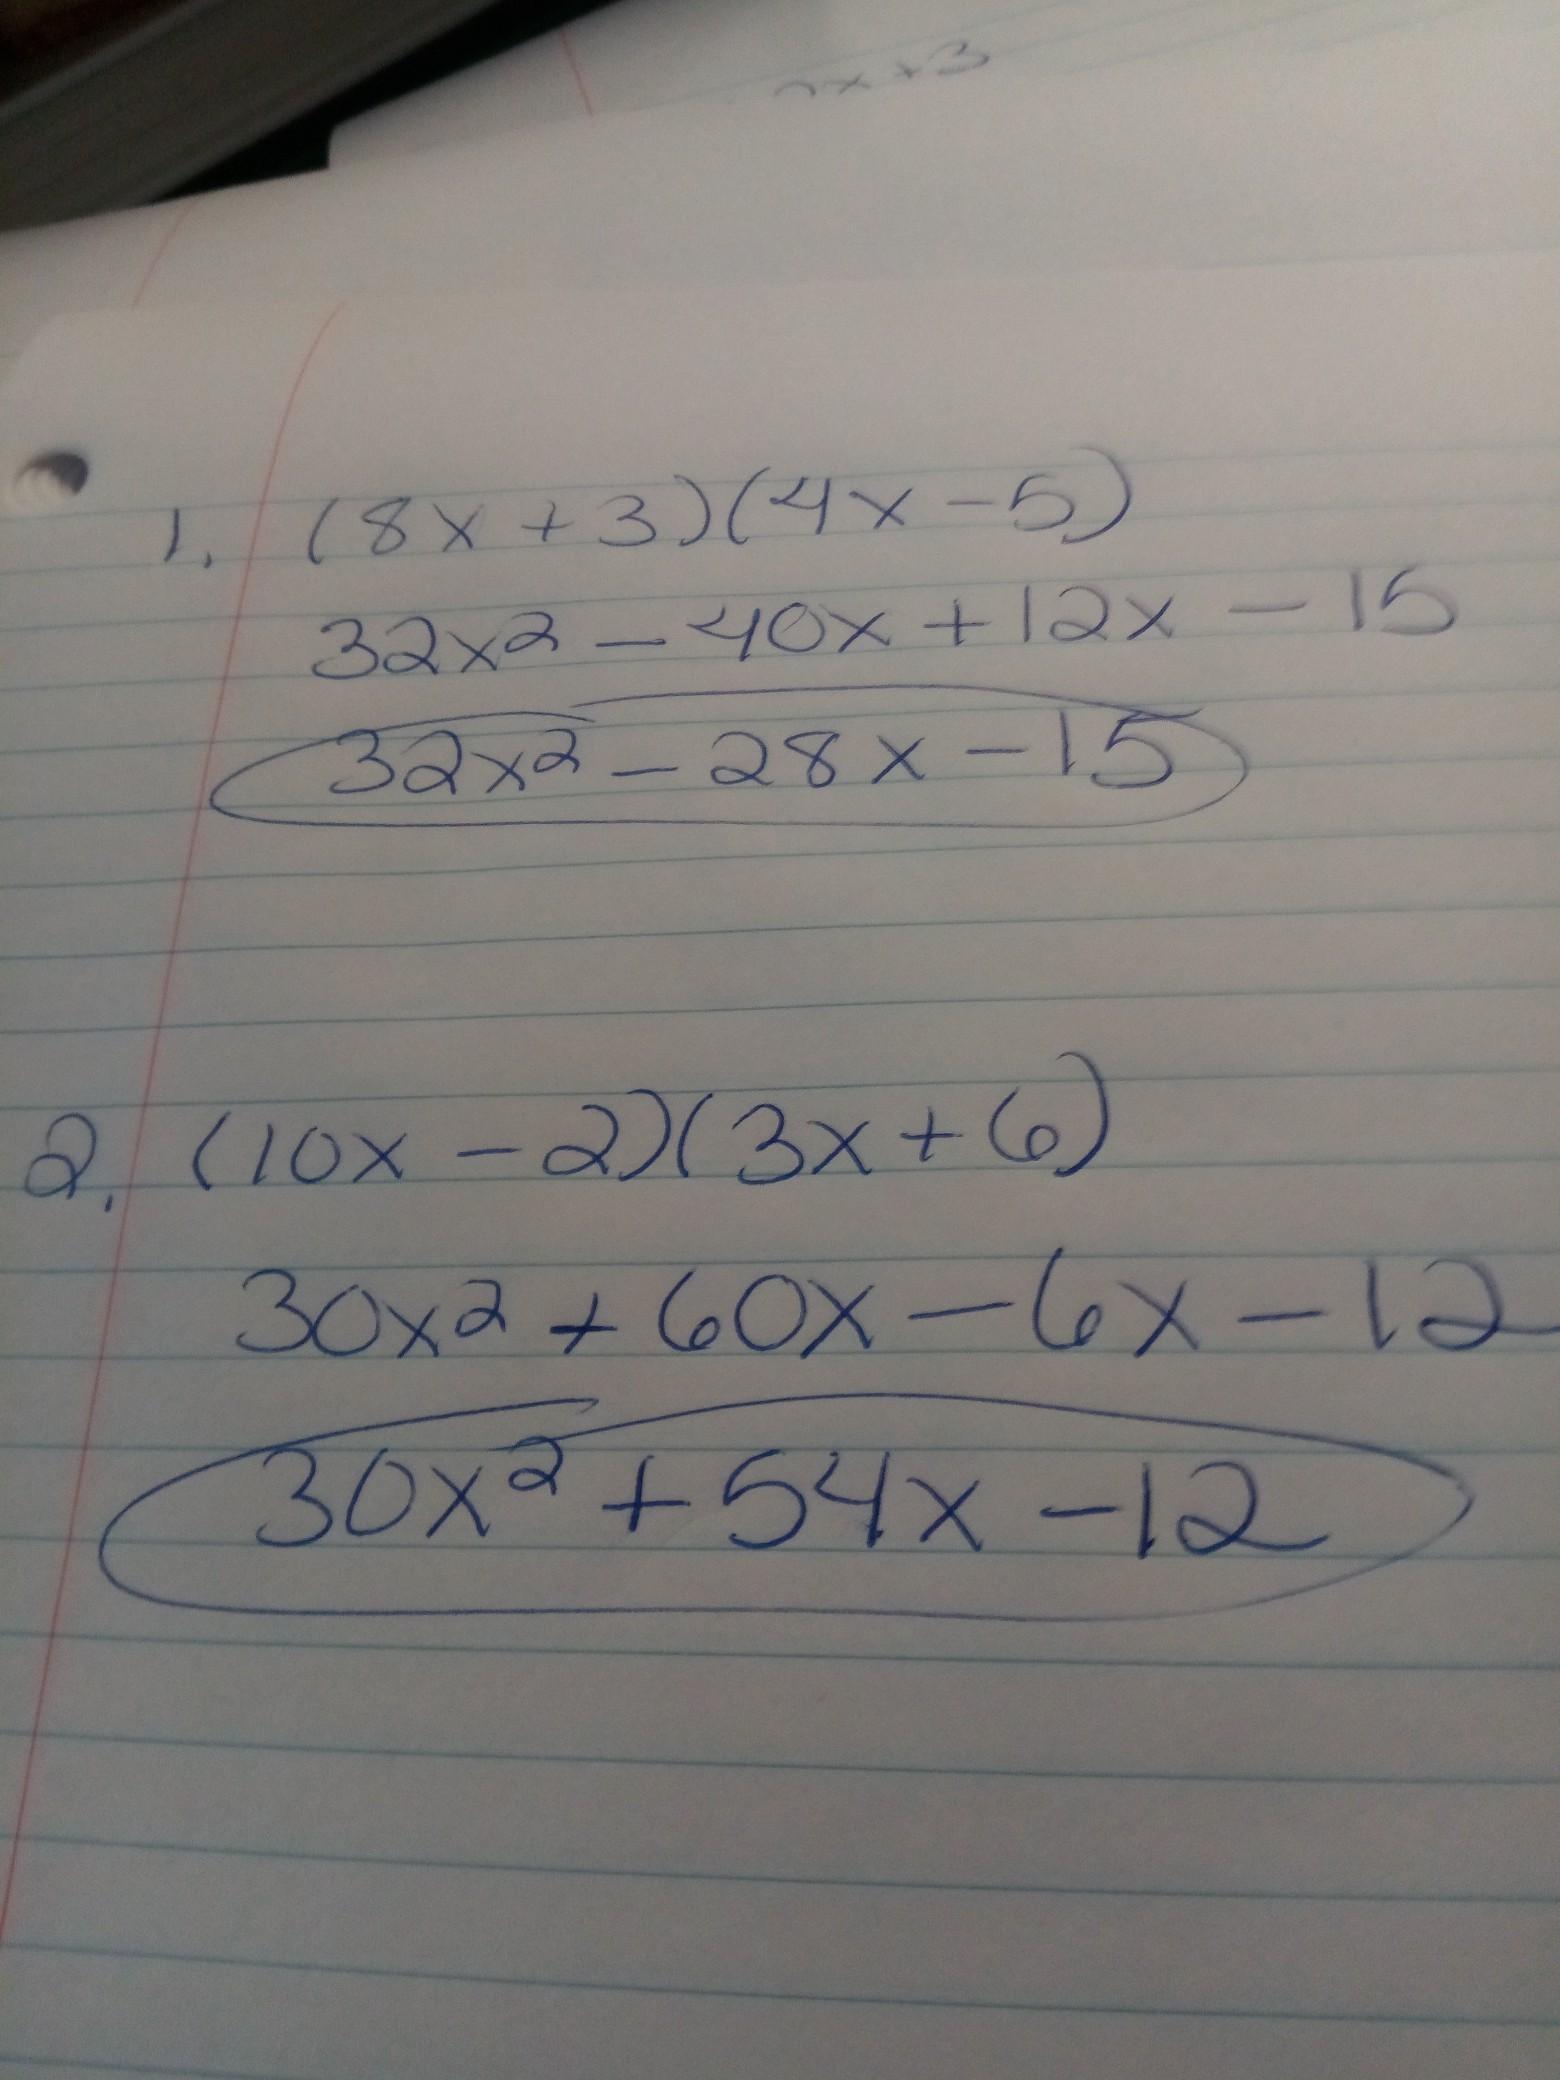 x + 3
1. (8x + 3)(4x - 5)
32x² - 40x + 12x - 15
32x² - 28x - 15
2. (10x - 2)(3x + 6)
30x² + 60x - 6x - 12
30x² + 54x - 12